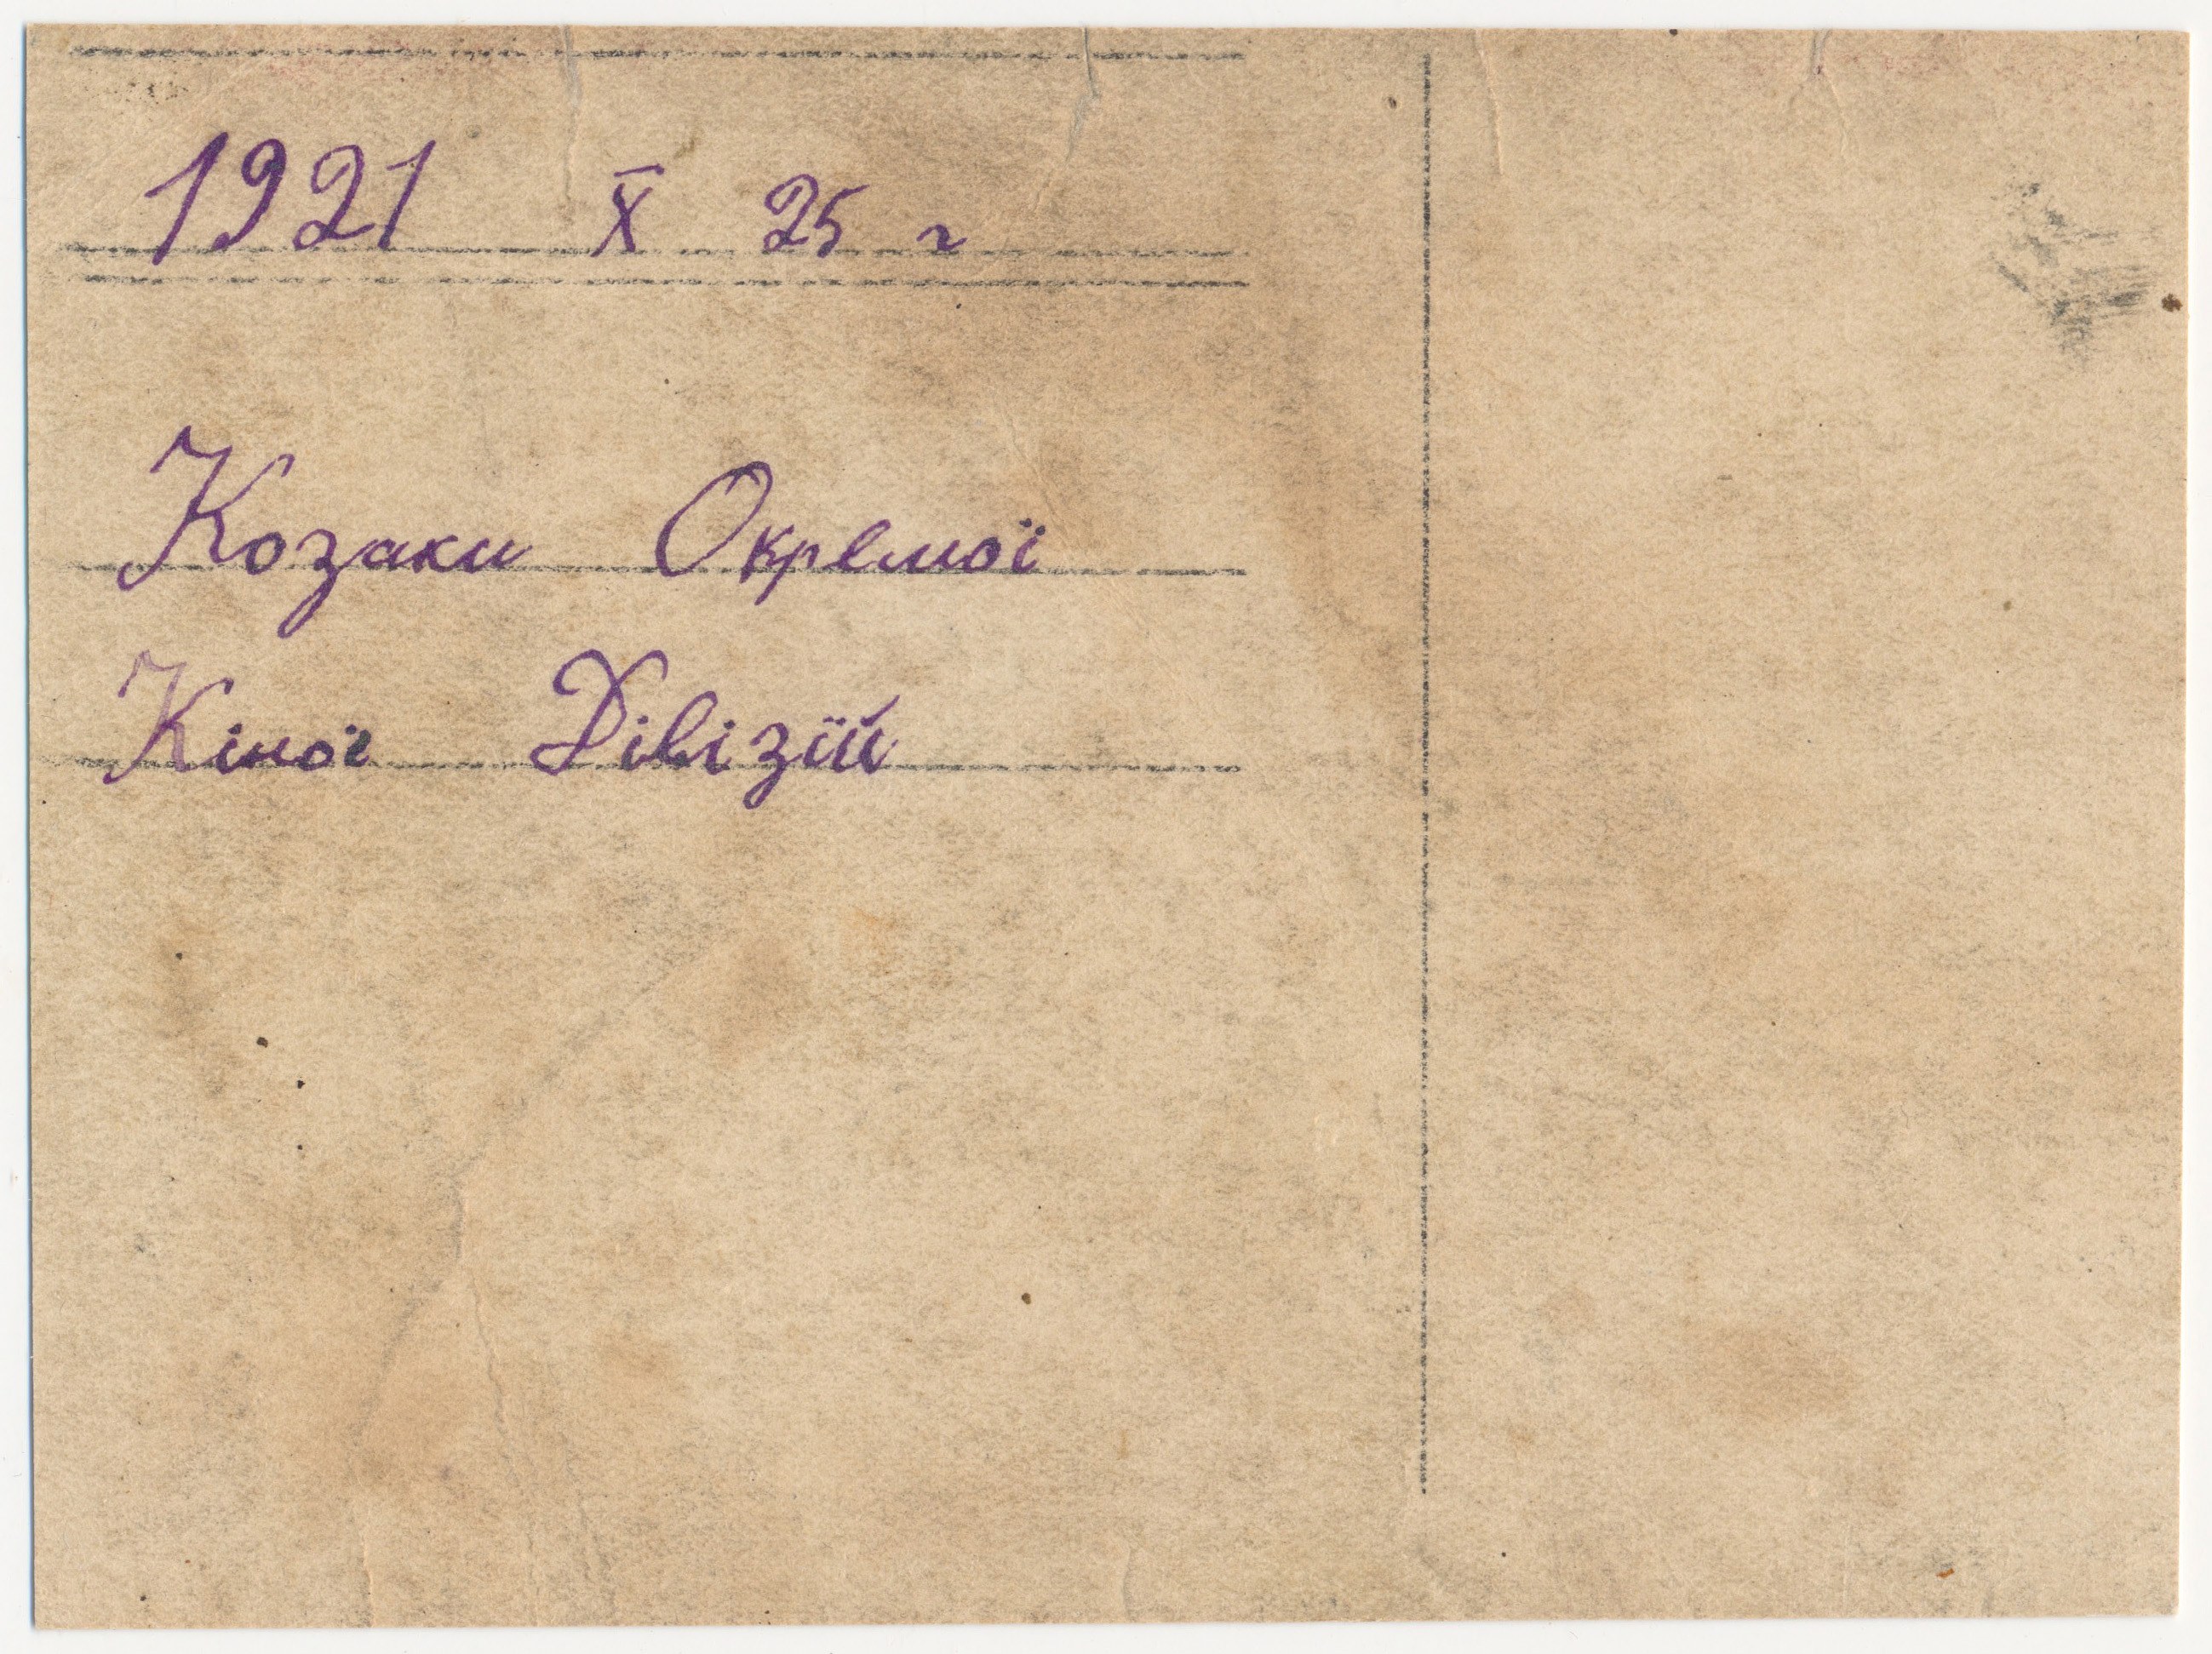 1921 X 25 г
Козаки Окремої
Кіної Дівізїй